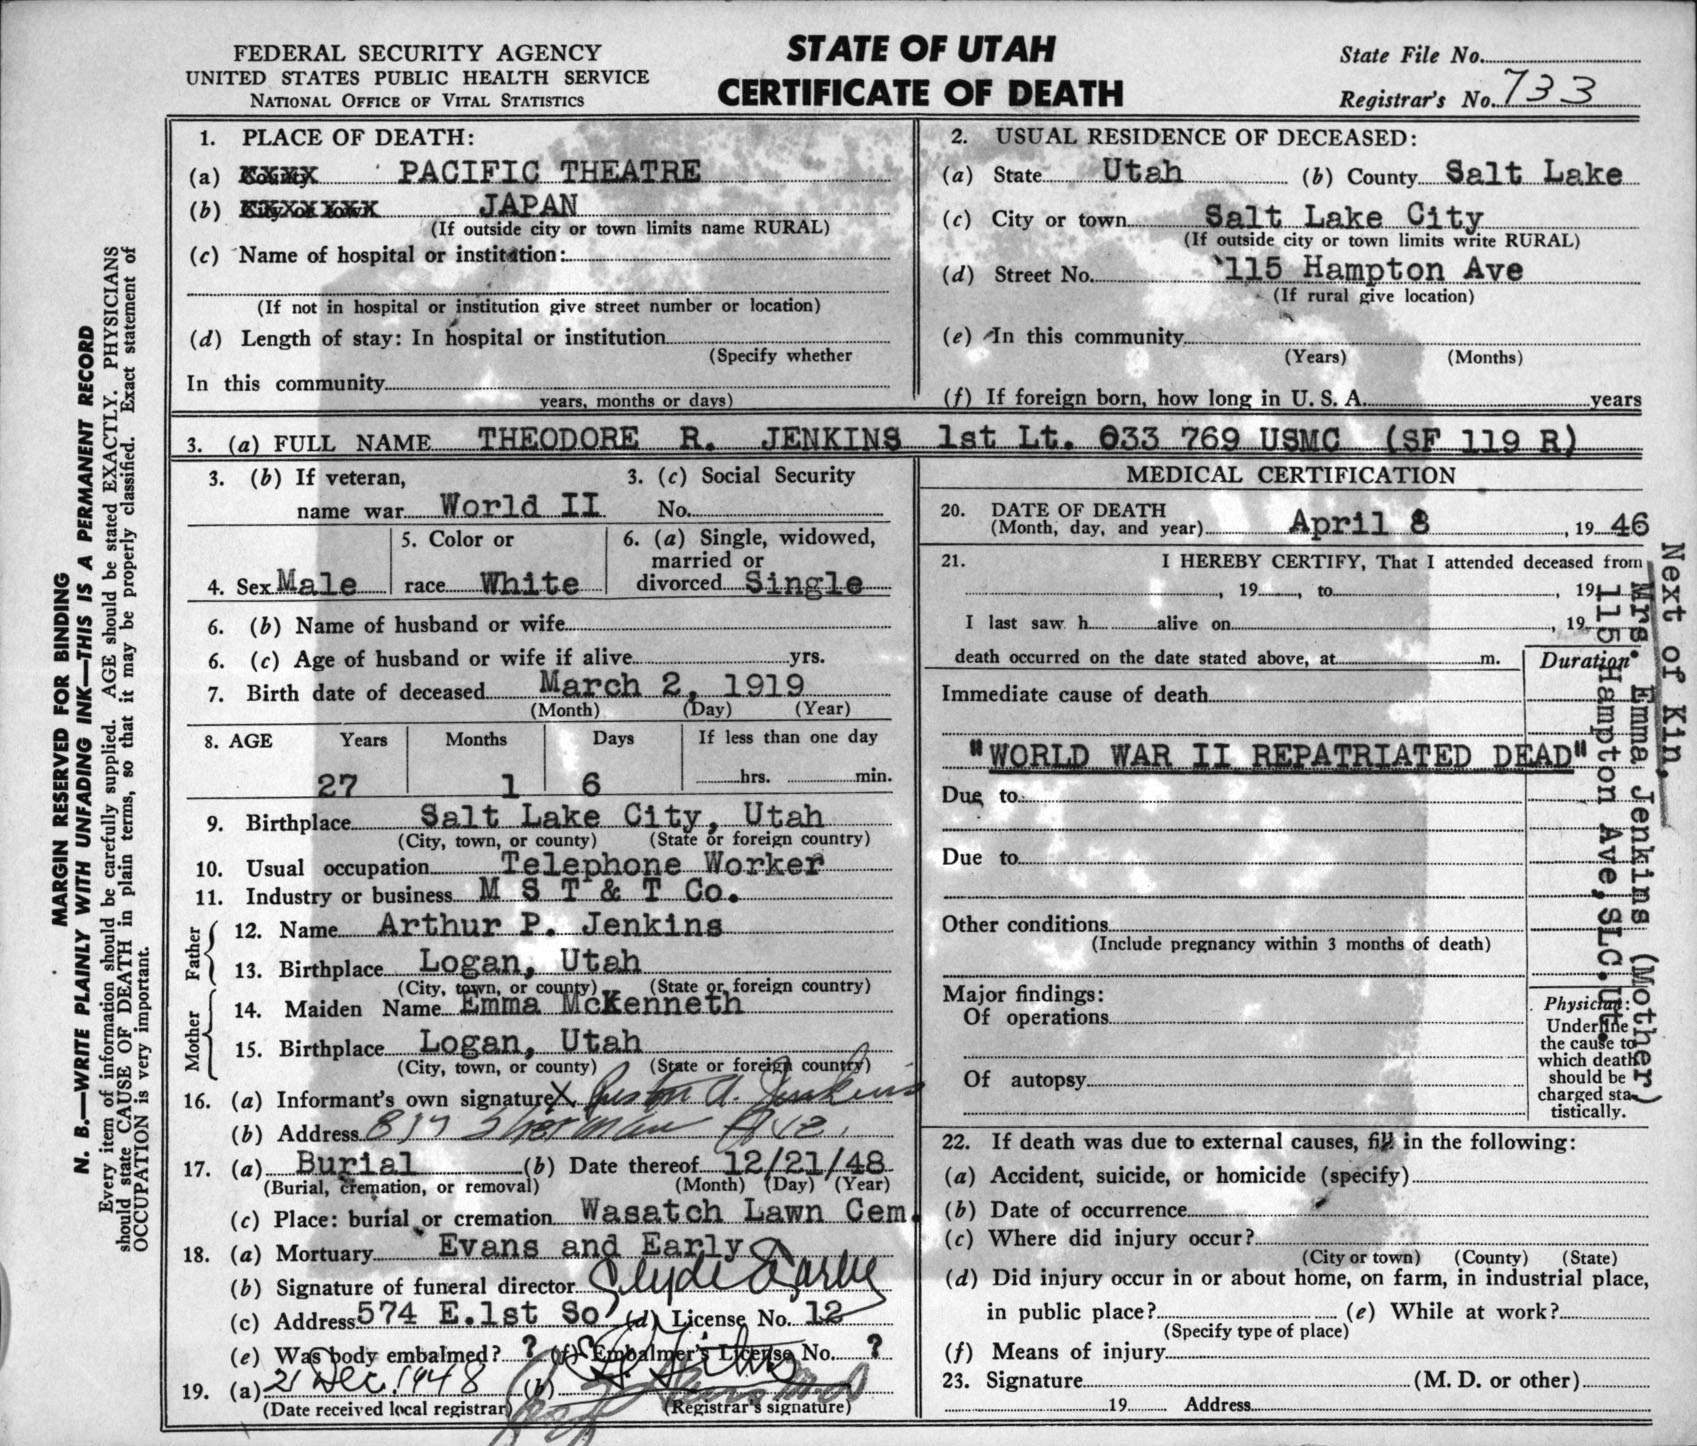 FEDERAL SECURITY AGENCY
UNITED STATES PUBLIC HEALTH SERVICE
NATIONAL OFFICE OF VITAL STATISTICS
STATE OF UTAH
CERTIFICATE OF DEATH
State File No.
Registrar's No. 733
MARGIN RESERVED FOR BINDING
N. B.—WRITE PLAINLY WITH UNFADING INK—THIS IS A PERMANENT RECORD
Every item of information should be carefully supplied. AGE should be stated EXACTLY. PHYSICIANS
should state CAUSE OF DEATH in plain terms, so that it may be properly classified. Exact statement of
OCCUPATION is very important.
1. PLACE OF DEATH:
(a) County PACIFIC THEATRE
(b) City or town JAPAN
(If outside city or town limits name RURAL)
(c) Name of hospital or institution:
(If not in hospital or institution give street number or location)
(d) Length of stay: In hospital or institution
(Specify whether
In this community
years, months or days)
2. USUAL RESIDENCE OF DECEASED:
(a) State Utah (b) County Salt Lake
(c) City or town Salt Lake City
(If outside city or town limits write RURAL)
(d) Street No. 115 Hampton Ave
(If rural give location)
(e) In this community
(Years) (Months)
(f) If foreign born, how long in U. S. A. years
3. (a) FULL NAME THEODORE R. JENKINS 1st Lt. 033 769 USMC (SF 119 R)
3. (b) If veteran,
name war World II
3. (c) Social Security
No.
4. Sex Male
5. Color or
race White
6. (a) Single, widowed,
married or
divorced Single
6. (b) Name of husband or wife
6. (c) Age of husband or wife if alive yrs.
7. Birth date of deceased March 2, 1919
(Month) (Day) (Year)
8. AGE Years Months Days If less than one day
27 1 6 hrs. min.
9. Birthplace Salt Lake City, Utah
(City, town, or county) (State or foreign country)
10. Usual occupation Telephone Worker
11. Industry or business M S T & T Co.
Father
12. Name Arthur P. Jenkins
13. Birthplace Logan, Utah
(City, town, or county) (State or foreign country)
Mother
14. Maiden Name Emma McKenneth
15. Birthplace Logan, Utah
(City, town, or county) (State or foreign country)
16. (a) Informant's own signature X A. Jenkins
(b) Address 817 Sherman Ave.
17. (a) Burial (b) Date thereof 12/21/48
(Burial, cremation, or removal) (Month) (Day) (Year)
(c) Place: burial or cremation Wasatch Lawn Cem.
18. (a) Mortuary Evans and Early
(b) Signature of funeral director Clyde Early
(c) Address 574 E.1st So (d) License No. 12
(e) Was body embalmed? ? (f) Embalmer's License No. ?
19. (a) 21 Dec. 1948 (b)
(Date received local registrar) (Registrar's signature)
MEDICAL CERTIFICATION
20. DATE OF DEATH
(Month, day, and year) April 8, 19 46
21. I HEREBY CERTIFY, That I attended deceased from
, 19 , to , 19
I last saw h alive on , 19
death occurred on the date stated above, at m.
Duration
Immediate cause of death
"WORLD WAR II REPATRIATED DEAD"
Due to
Due to
Other conditions
(Include pregnancy within 3 months of death)
Major findings:
Of operations
Of autopsy
Physician:
Underline
the cause to
which death
should be
charged sta-
tistically.
22. If death was due to external causes, fill in the following:
(a) Accident, suicide, or homicide (specify)
(b) Date of occurrence
(c) Where did injury occur?
(City or town) (County) (State)
(d) Did injury occur in or about home, on farm, in industrial place,
in public place? (e) While at work?
(Specify type of place)
(f) Means of injury
23. Signature (M. D. or other)
19 Address
Next of Kin,
Mrs. Emma Jenkins (Mother)
115 Hampton Ave, SLC. Ut.